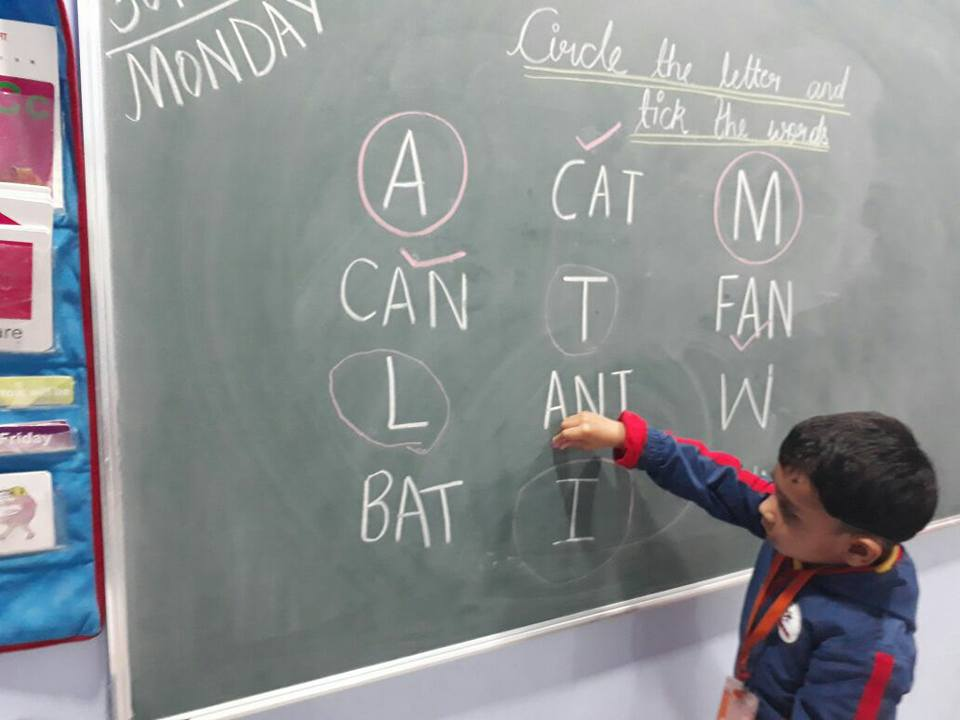 MONDAY
Circle the letter and
tick the words
A CAT M
CAN T FAN
L ANT W
BAT I
Cc
are
Friday